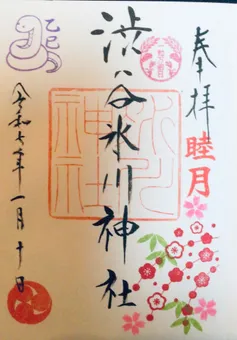 奉拝
睦月
渋谷氷川神社
氷川
神社
乙巳
令和七年一月十日